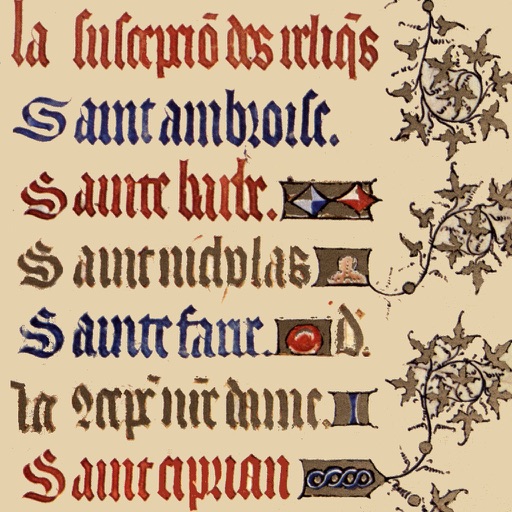 la susceptiō des reliq̄s
Saint ambroise.
Sainte barbe.
Saint nicholas
Sainte fare. d'.
la 9cep̄ nr̄e dame.
Saint ciprian